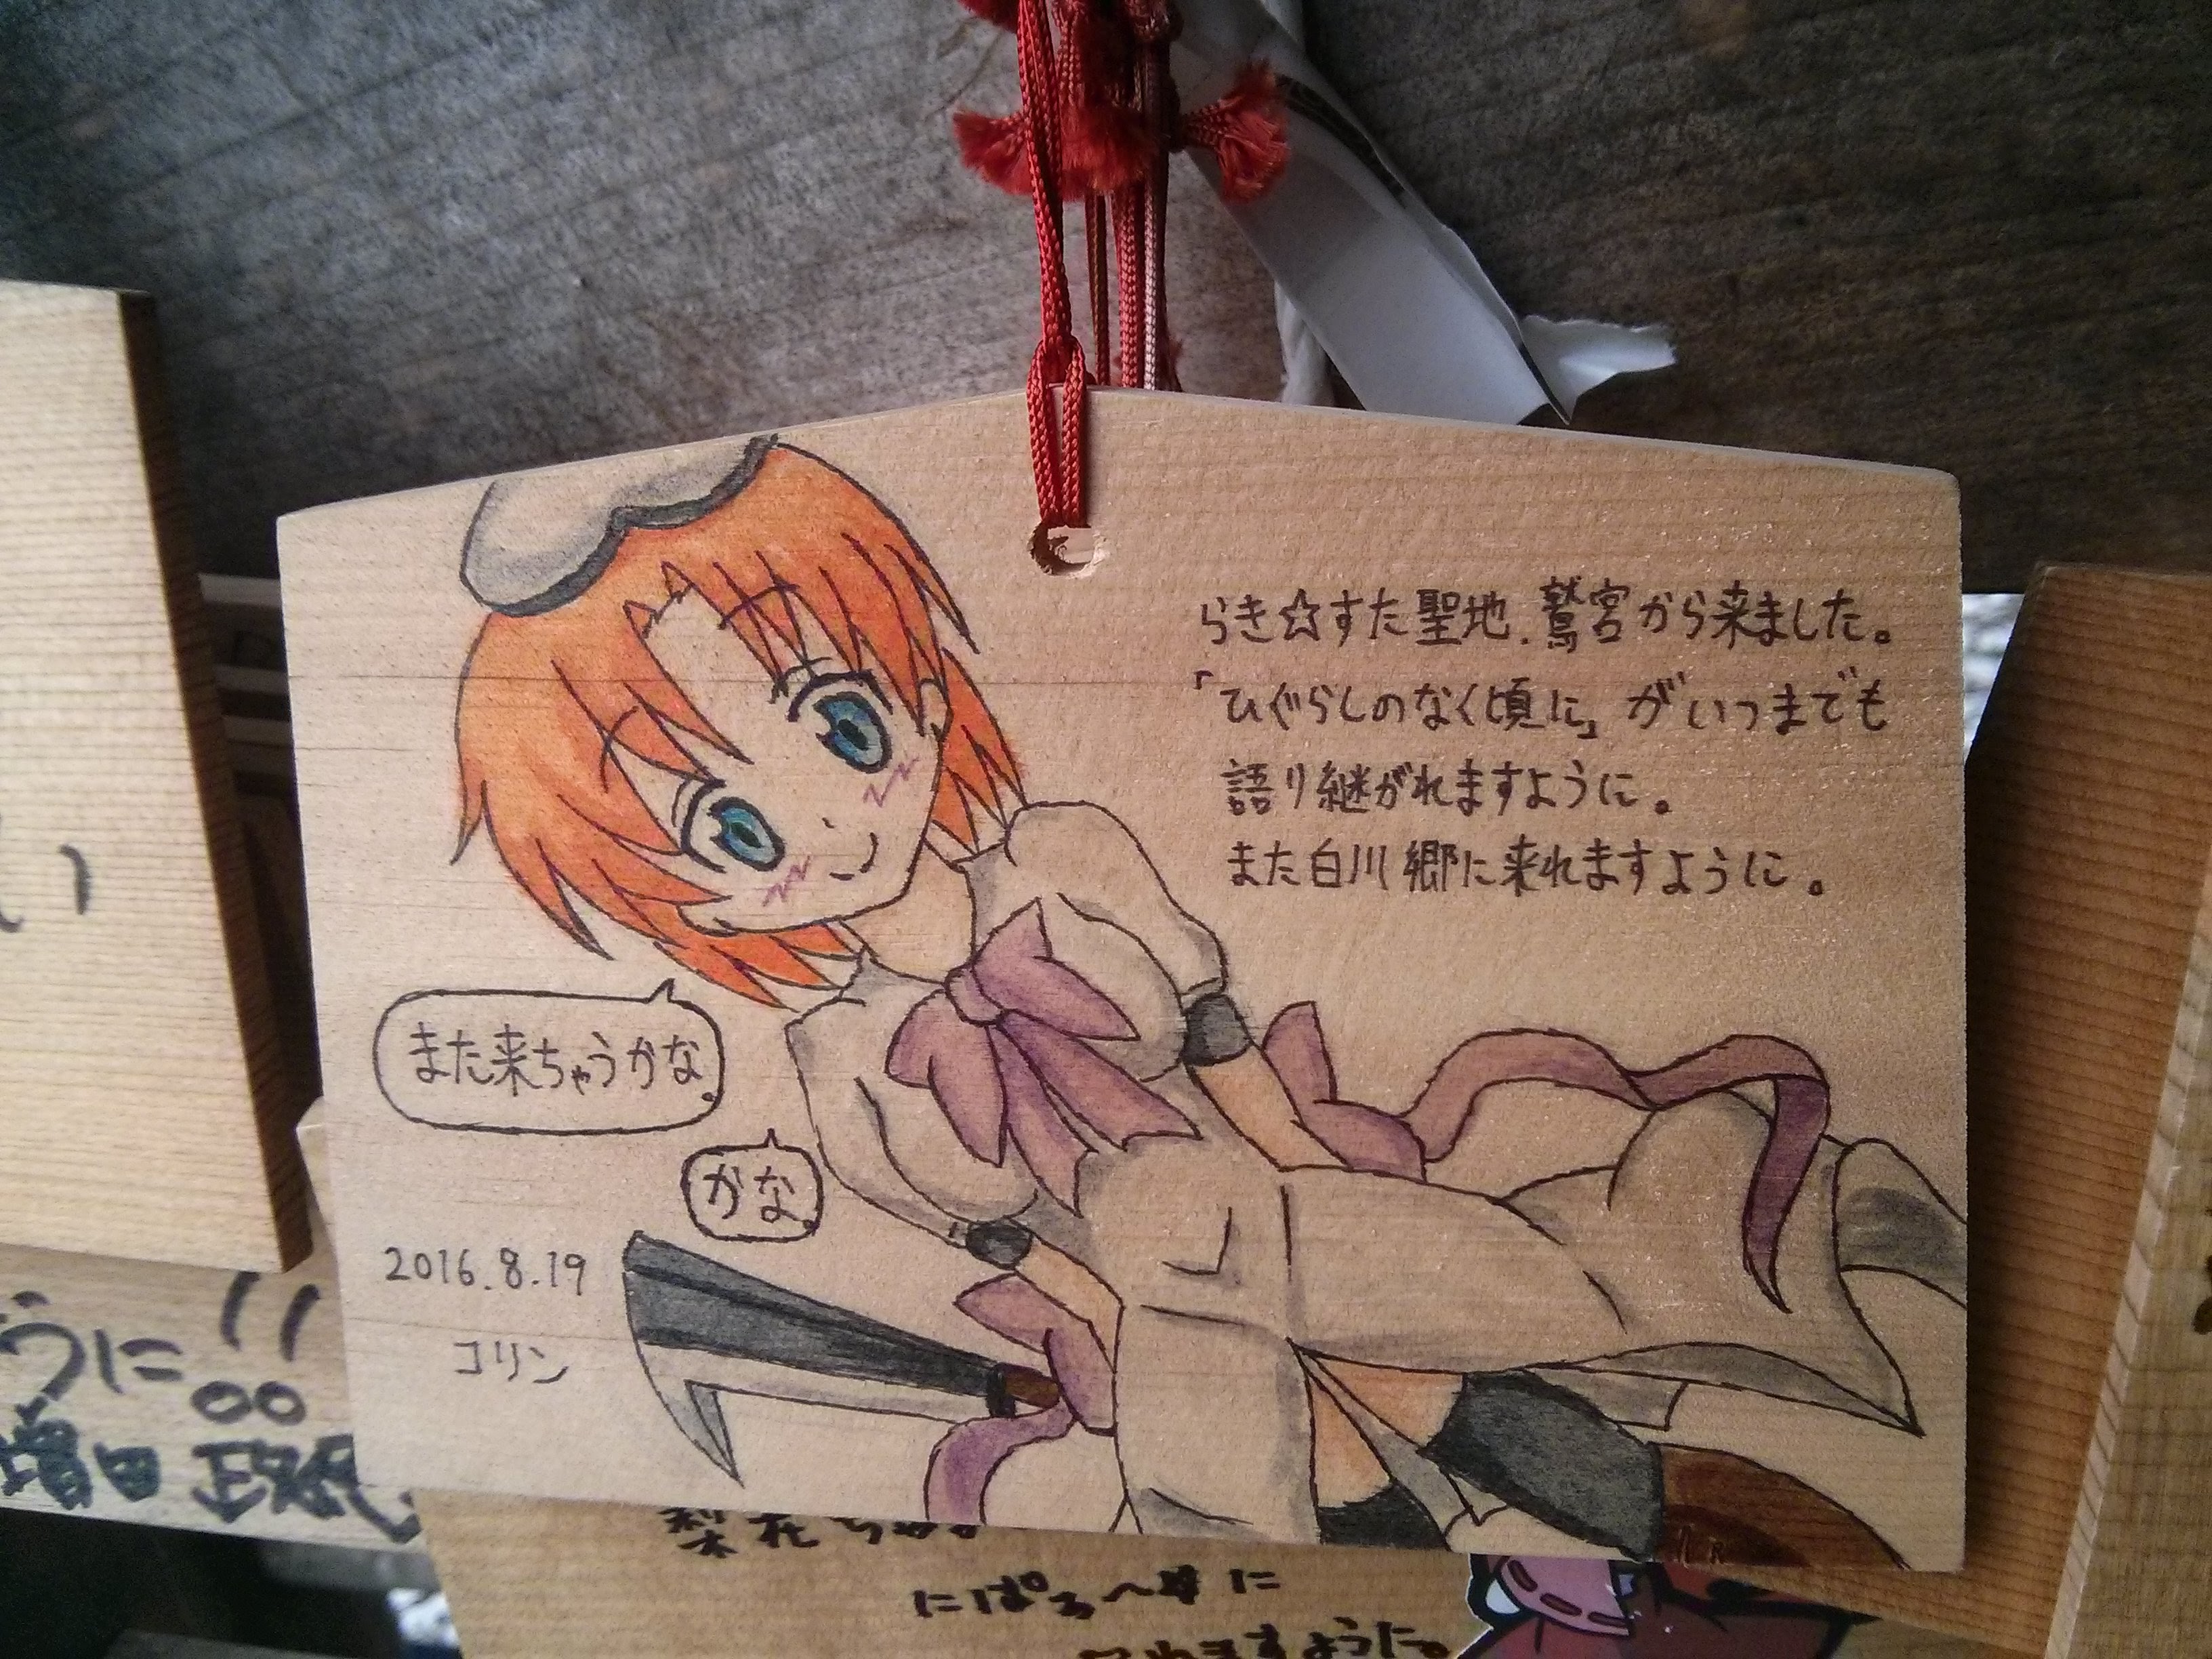 らき☆すた聖地.鷲宮から来ました。
「ひぐらしのなく頃に」がいつまでも
語り継がれますように。
また白川郷に来れますように。
また来ちゃうかな。
かな。
2016.8.19
コリン
うに!!
増田
梨花ちゃ
にぱぁ〜#に
れますように。